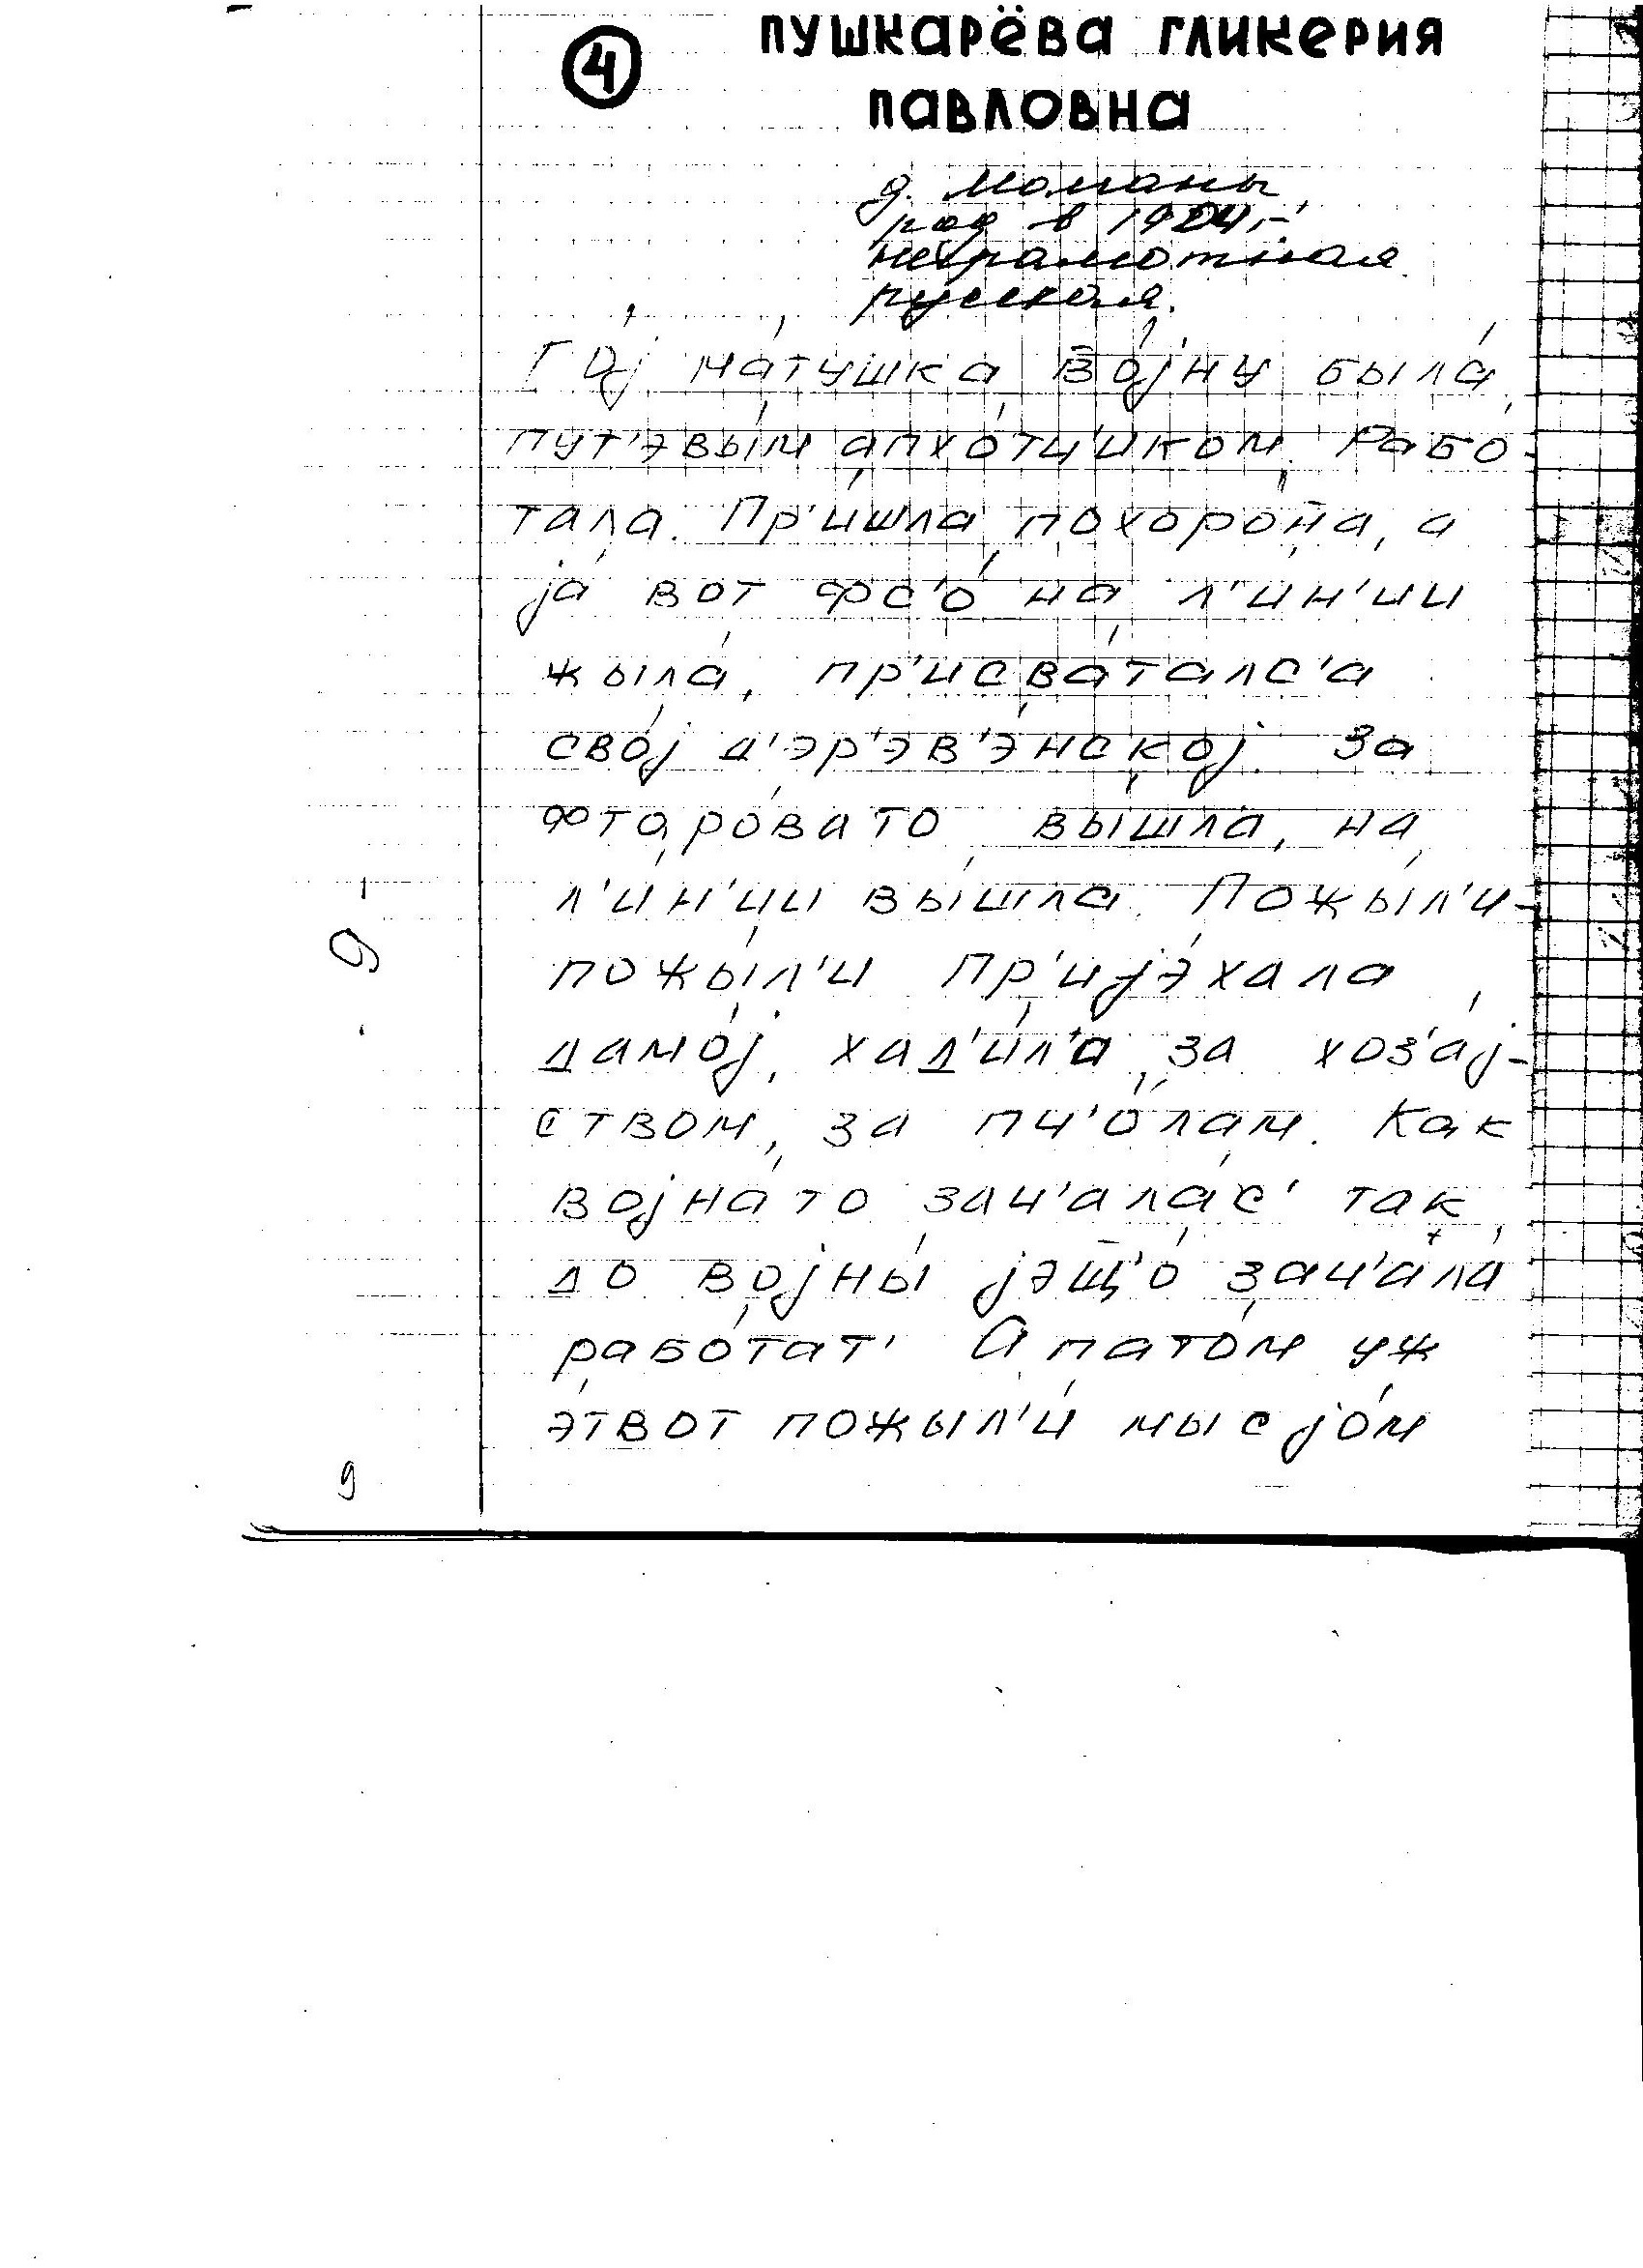 ④ ПУШКАРЁВА ГЛИКЕРИЯ
ПАВЛОВНА
д. Моманы
род в 1924 г.
неграмотная
русская.
Гој ма́тушка во́јну была́
пут'эвы́м апхо́тч'иком. Рабо́-
тала. Пр'ишла́ похоро́на, а
ја вот фс'о на л'и́н'ии
жыла́, пр'исва́талс'а
свој д'эр'эв'э́нској. За
фтаро́вато вы́шла, на
л'и́н'ии вы́шла. Пожы́л'и-
пожы́л'и пр'ијэ́хала
дамо́ј, хад'и́л'а за хоз'а́ј-
ством, за пч'о́лам. Как
војна́ то зач'ала́с' так
до војны́ јэщ'о́ зач'ала́
рабо́тат' А пато́м уж
э́твот пожы́л'и́ мы с јо́м
- 9 -
9